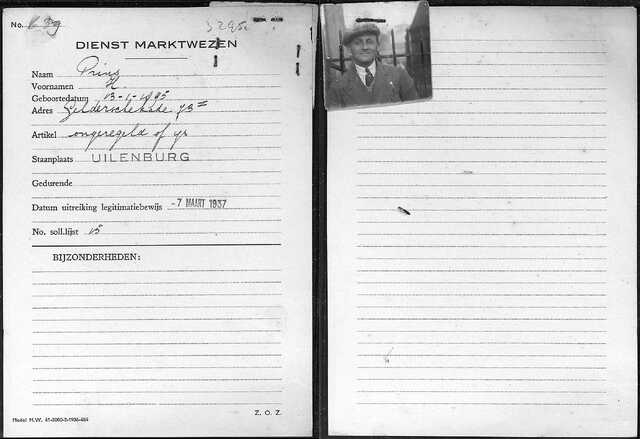 No. 639
DIENST MARKTWEZEN
Naam Prins
Voornamen H
Geboortedatum 13-1-1895
Adres Gelderschekade
Artikel ongeregeld of ys
Staanplaats UILENBURG
Gedurende
Datum uitreiking legitimatiebewijs -7 MAART 1937
No. soll.lijst 15
BIJZONDERHEDEN:
Z. O. Z.